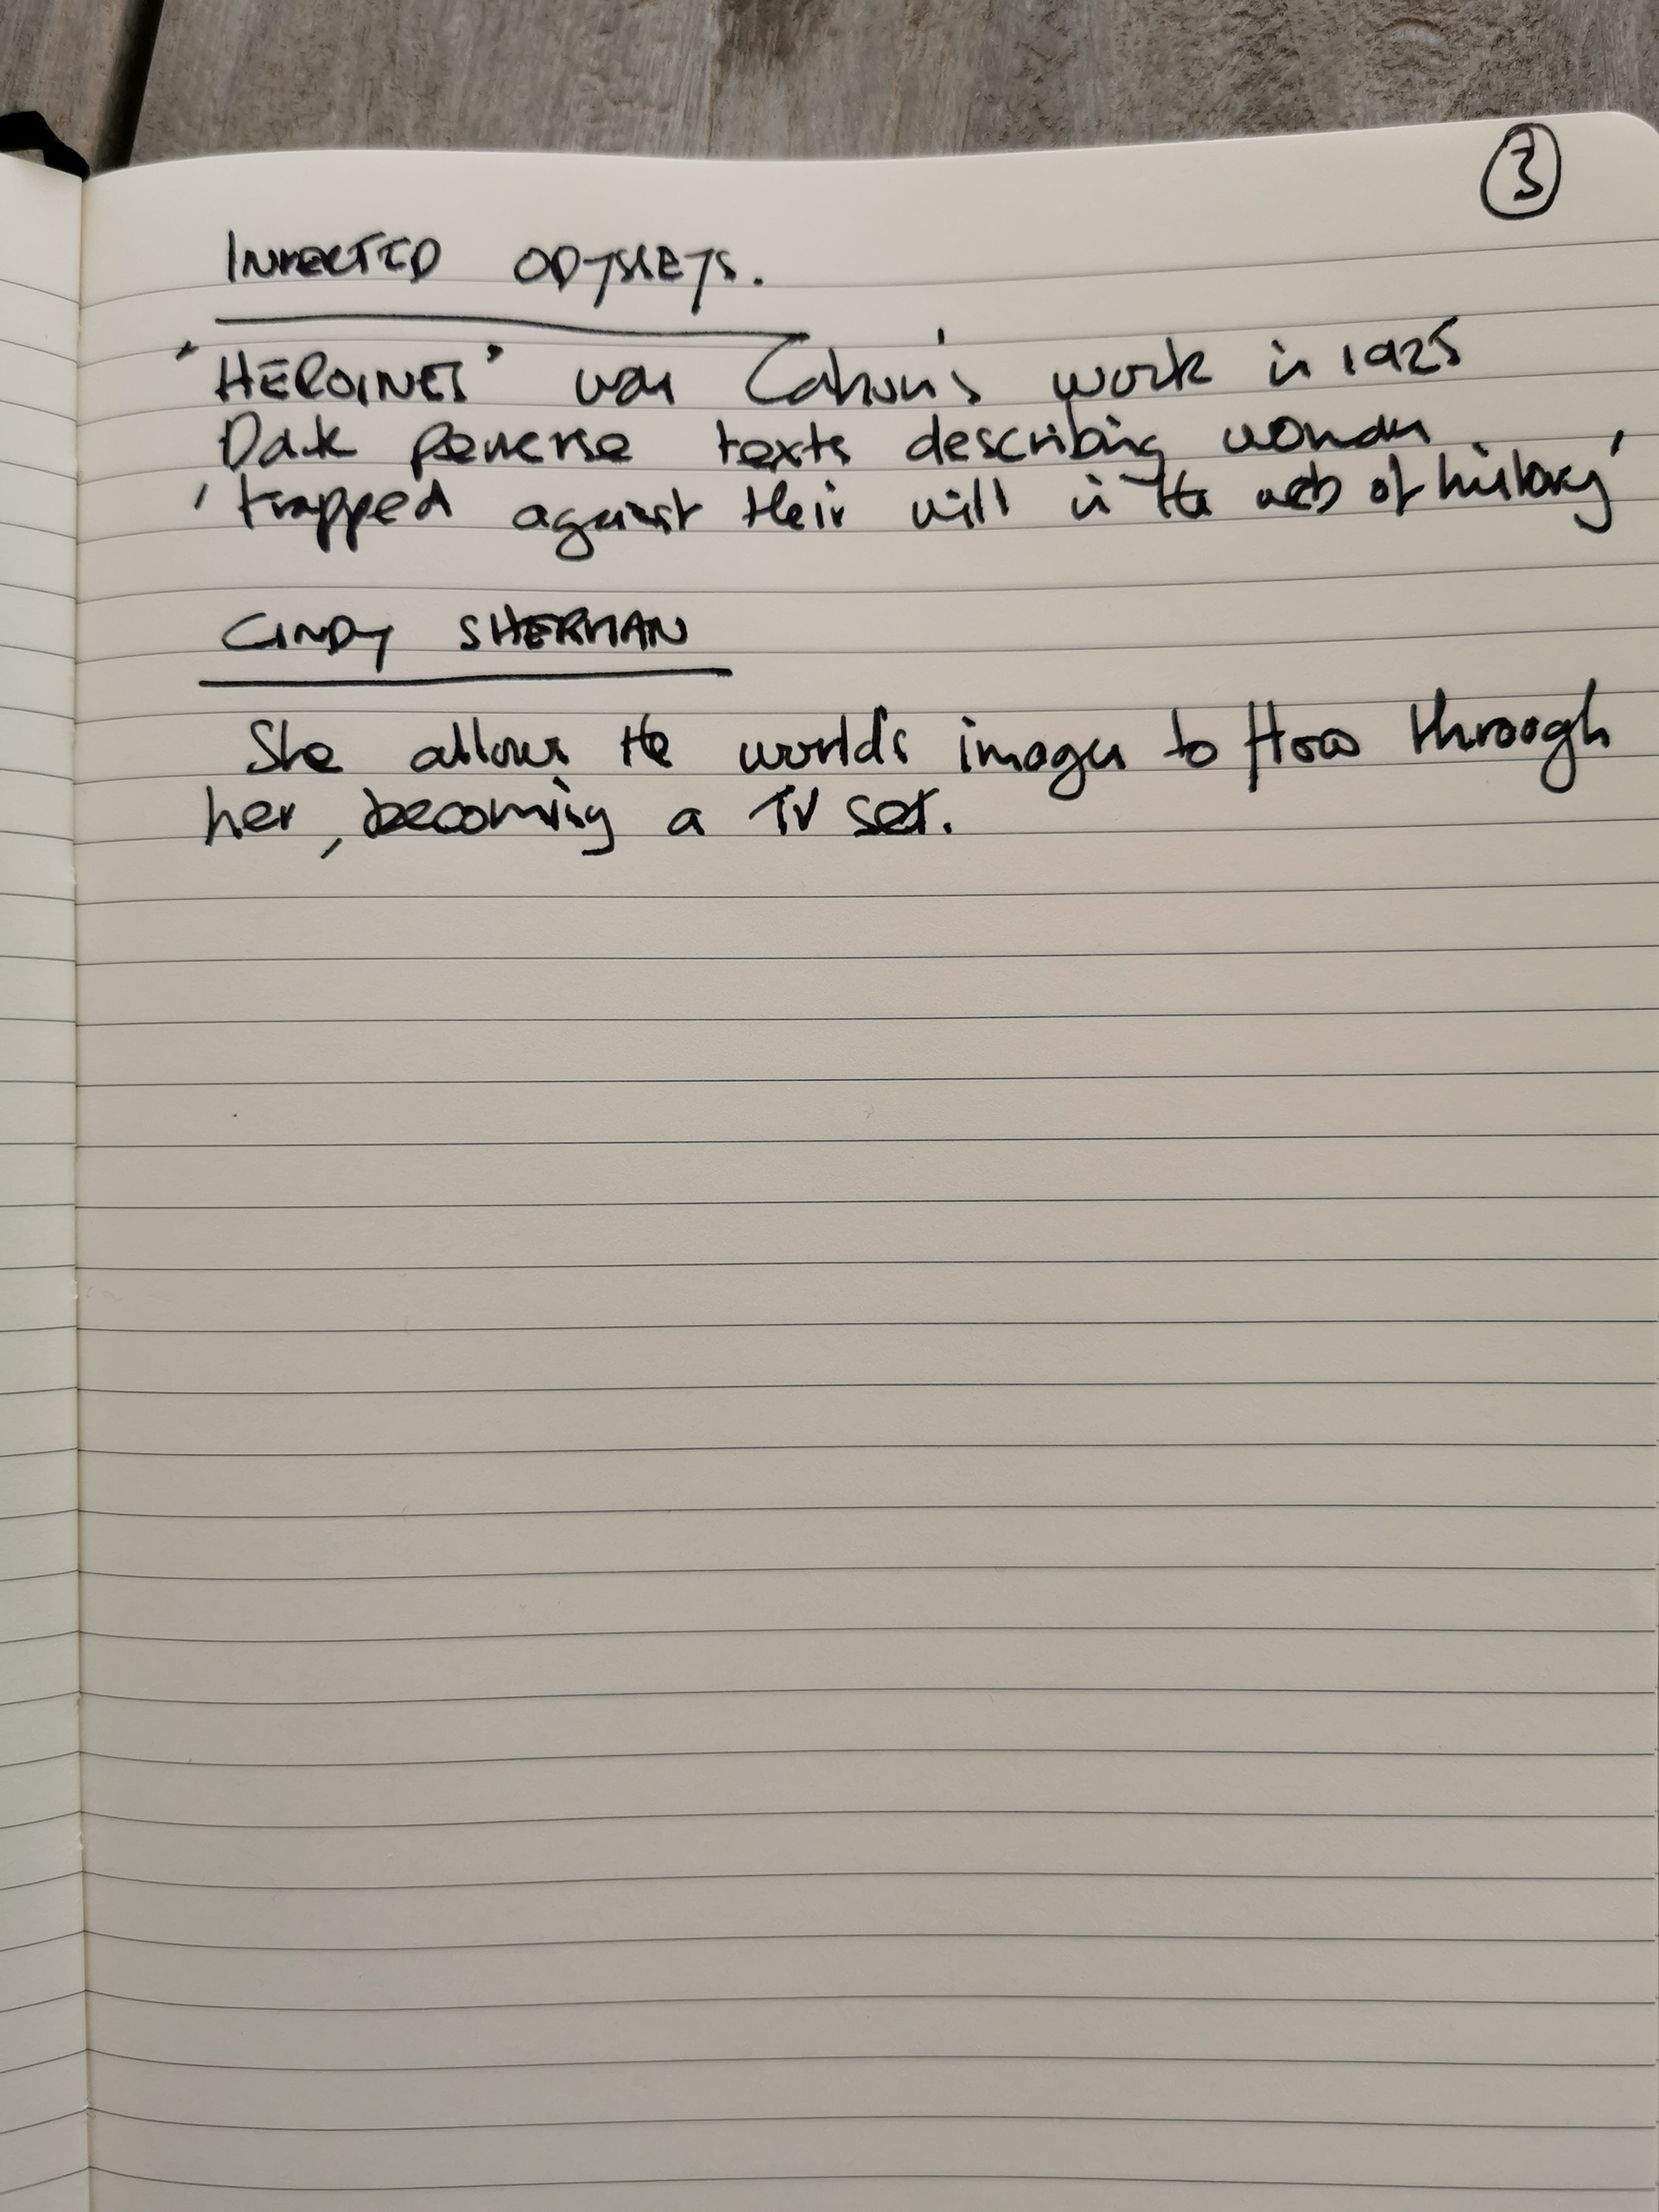 3
INVERTED ODYSSEYS.
"HEROINES" was Cahun's work in 1925
Dark perverse texts describing women
'trapped against their will in the web of history'
CINDY SHERMAN
She allows the world's images to flow through
her, becoming a TV set.